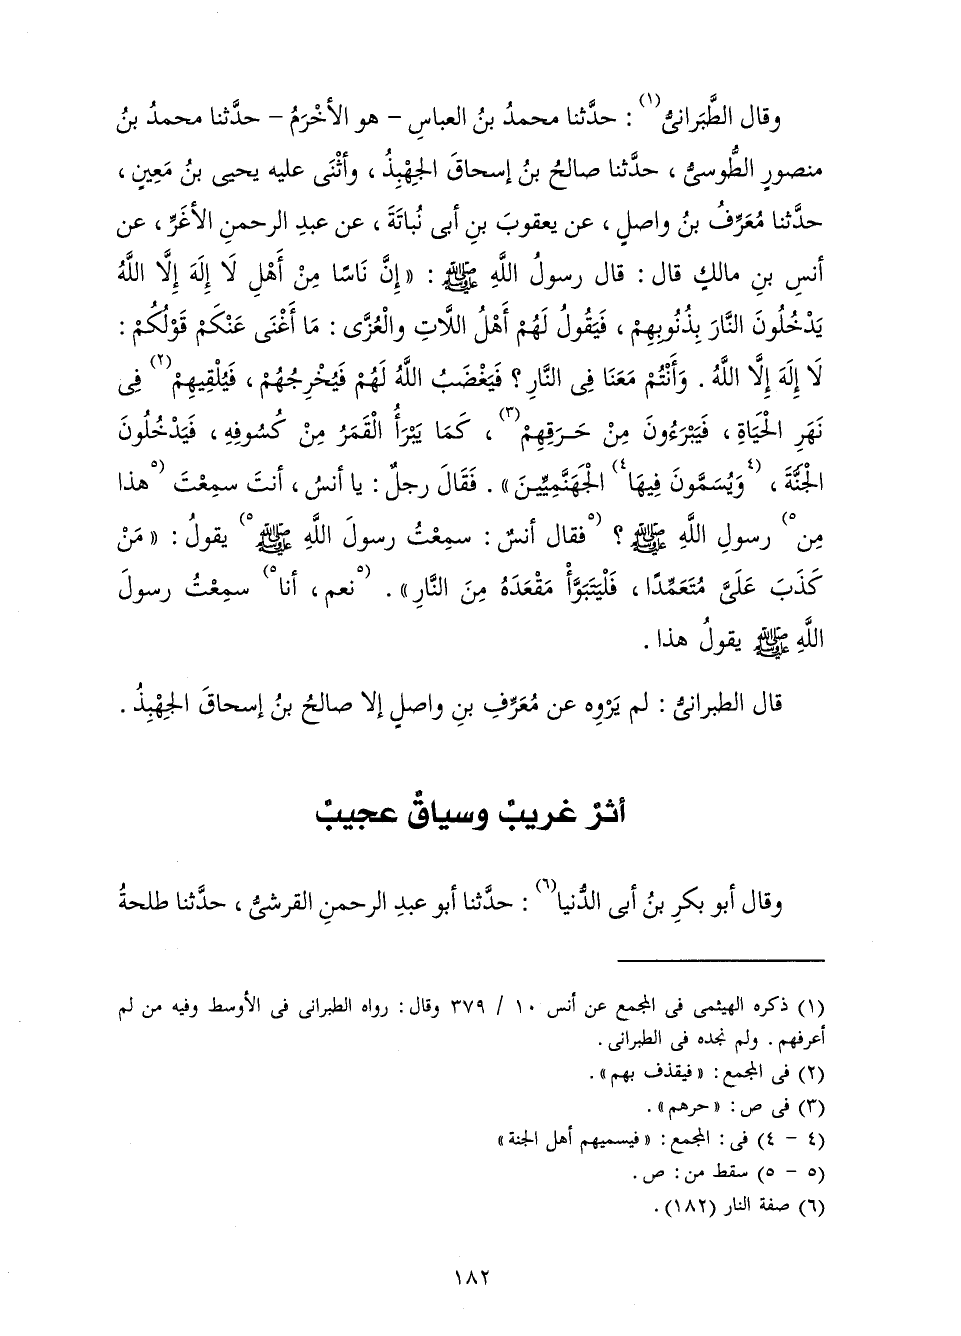 وقال الطَّبَرانىُّ(١) : حدَّثنا محمدُ بنُ العباسِ - هو الأخْرَمُ - حدَّثنا محمدُ بنُ
منصورٍ الطُّوسىُّ ، حدَّثنا صالحُ بنُ إسحاقَ الجِهْبِذُ ، وأثْنَى عليه يحيى بنُ مَعِينٍ ،
حدَّثنا مُعَرِّفُ بنُ واصلٍ ، عن يعقوبَ بنِ أبى نُباتَةَ ، عن عبدِ الرحمنِ الأغَرِّ ، عن
أنسِ بنِ مالكٍ قال : قال رسولُ اللَّهِ ﷺ : « إِنَّ نَاسًا مِنْ أَهْلِ لَا إِلَهَ إِلَّا اللَّهُ
يَدْخُلُونَ النَّارَ بِذُنُوبِهِمْ ، فَيَقُولُ لَهُمْ أَهْلُ اللَّاتِ والْعُزَّى : مَا أَغْنَى عَنْكُمْ قَوْلُكُمْ :
لَا إِلَهَ إِلَّا اللَّهُ . وَأَنْتُمْ مَعَنَا فِى النَّارِ ؟ فَيَغْضَبُ اللَّهُ لَهُمْ فَيُخْرِجُهُمْ ، فَيُلْقِيهِمْ(٢) فِى
نَهَرِ الْحَيَاةِ ، فَيَبْرَءُونَ مِنْ حَرَقِهِمْ(٣) ، كَمَا يَبْرَأُ الْقَمَرُ مِنْ كُسُوفِهِ ، فَيَدْخُلُونَ
الْجَنَّةَ ، (٤وَيُسَمَّونَ فِيهَا٤) الْجَهَنَّمِيِّينَ » . فَقَالَ رجلٌ : يا أنسُ ، أنتَ سمِعْتَ (٥هذا
مِن٥) رسولِ اللَّهِ ﷺ ؟ (٥فقال أنسٌ : سمِعْتُ رسولَ اللَّهِ ﷺ٥) يقولُ : « مَنْ
كَذَبَ عَلَىَّ مُتَعَمِّدًا ، فَلْيَتَبَوَّأْ مَقْعَدَهُ مِنَ النَّارِ » . (٥نعم ، أنا٥) سمِعْتُ رسولَ
اللَّهِ ﷺ يقولُ هذا .
قال الطبرانىُّ : لم يَرْوِه عن مُعَرِّفِ بنِ واصلٍ إلا صالحُ بنُ إسحاقَ الجِهْبِذُ .
أثرٌ غريبٌ وسياقٌ عجيبٌ
وقال أبو بكرِ بنُ أبى الدُّنيا(٦) : حدَّثنا أبو عبدِ الرحمنِ القرشىُّ ، حدَّثنا طلحةُ
(١) ذكره الهيثمى فى المجمع عن أنس ١٠ / ٣٧٩ وقال : رواه الطبرانى فى الأوسط وفيه من لم
أعرفهم . ولم نجده فى الطبرانى .
(٢) فى المجمع : « فيقذف بهم » .
(٣) فى ص : « حرهم » .
(٤ - ٤) فى : المجمع : « فيسميهم أهل الجنة »
(٥ - ٥) سقط من : ص .
(٦) صفة النار (١٨٢) .
١٨٢